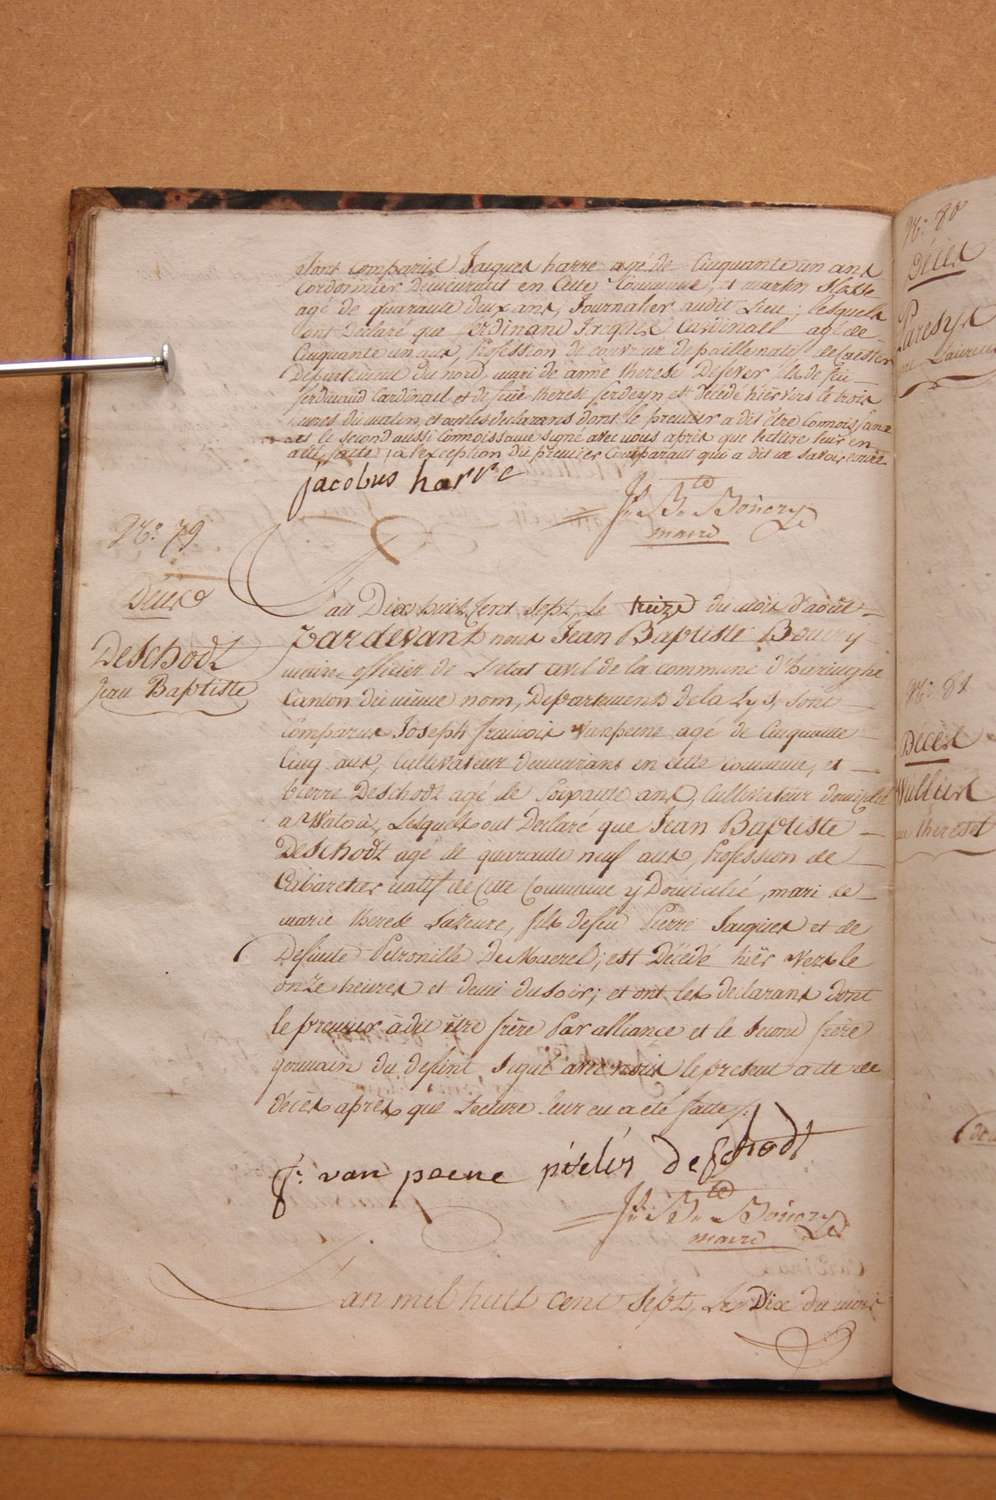 sont comparus Jacques harre agé de Cinquante un ans
Cordonnier demeurant en Cette Commune, et martin
agé de quarante deux ans, Journalier audit Lieu; lesquels
ont Declaré que ferdinand Cardinael agé de
Cinquante un ans, Profession de couvreur de paille natif de
Departement du nord, mari de anne therese fils de feu
ferdinand Cardinael et de feue therese est décédé hier vers le trois
heures du matin, et ont les declarans dont le premier a dit être
et le second aussi Connoissance signé avec nous après que lecture leur en
a été faite, à l'exception du premier Comparant qui a dit ne savoir écrire
jacobus harre
J: Bte Bouery
maire
No: 79
Déces
DeSchodt
Jean Baptiste
L'an Dix huit Cent sept, le treize du mois d'août
Pardevant nous Jean Baptiste Bouery
maire officier de L'etat civil de la commune d'haringhe
Canton du même nom, Departement de la Lys, sont
Comparus Joseph francois vanpeene agé de Cinquante
Cinq ans, Cultivateur demeurant en cette commune, et
Pierre DeSchodt agé de Soixante ans, Cultivateur domicilié
a Watou, Lesquels ont Declaré que Jean Baptiste
DeSchodt agé de quarante neuf ans, Profession de
Cabaretier natif de Cette Commune y Domicilié, mari de
marie therese Lazeure, fils de feu Pierre Jacques et de
Defunte Petronille DeMaerel, est Décédé hier Vers le
onze heures et demi du soir; et ont les declarans dont
le premier à dit être frère Par alliance et le second frère
germain du defunt Signé avec nous le present acte de
déces après que Lecture leur en a été faite
f: van peene pieter deschodt
J: Bte Bouery
maire
L'an mil huit cent sept, Le Dix du mois
No: 80
Décès
Paresys
No: 81
Décès
Wullien
therese